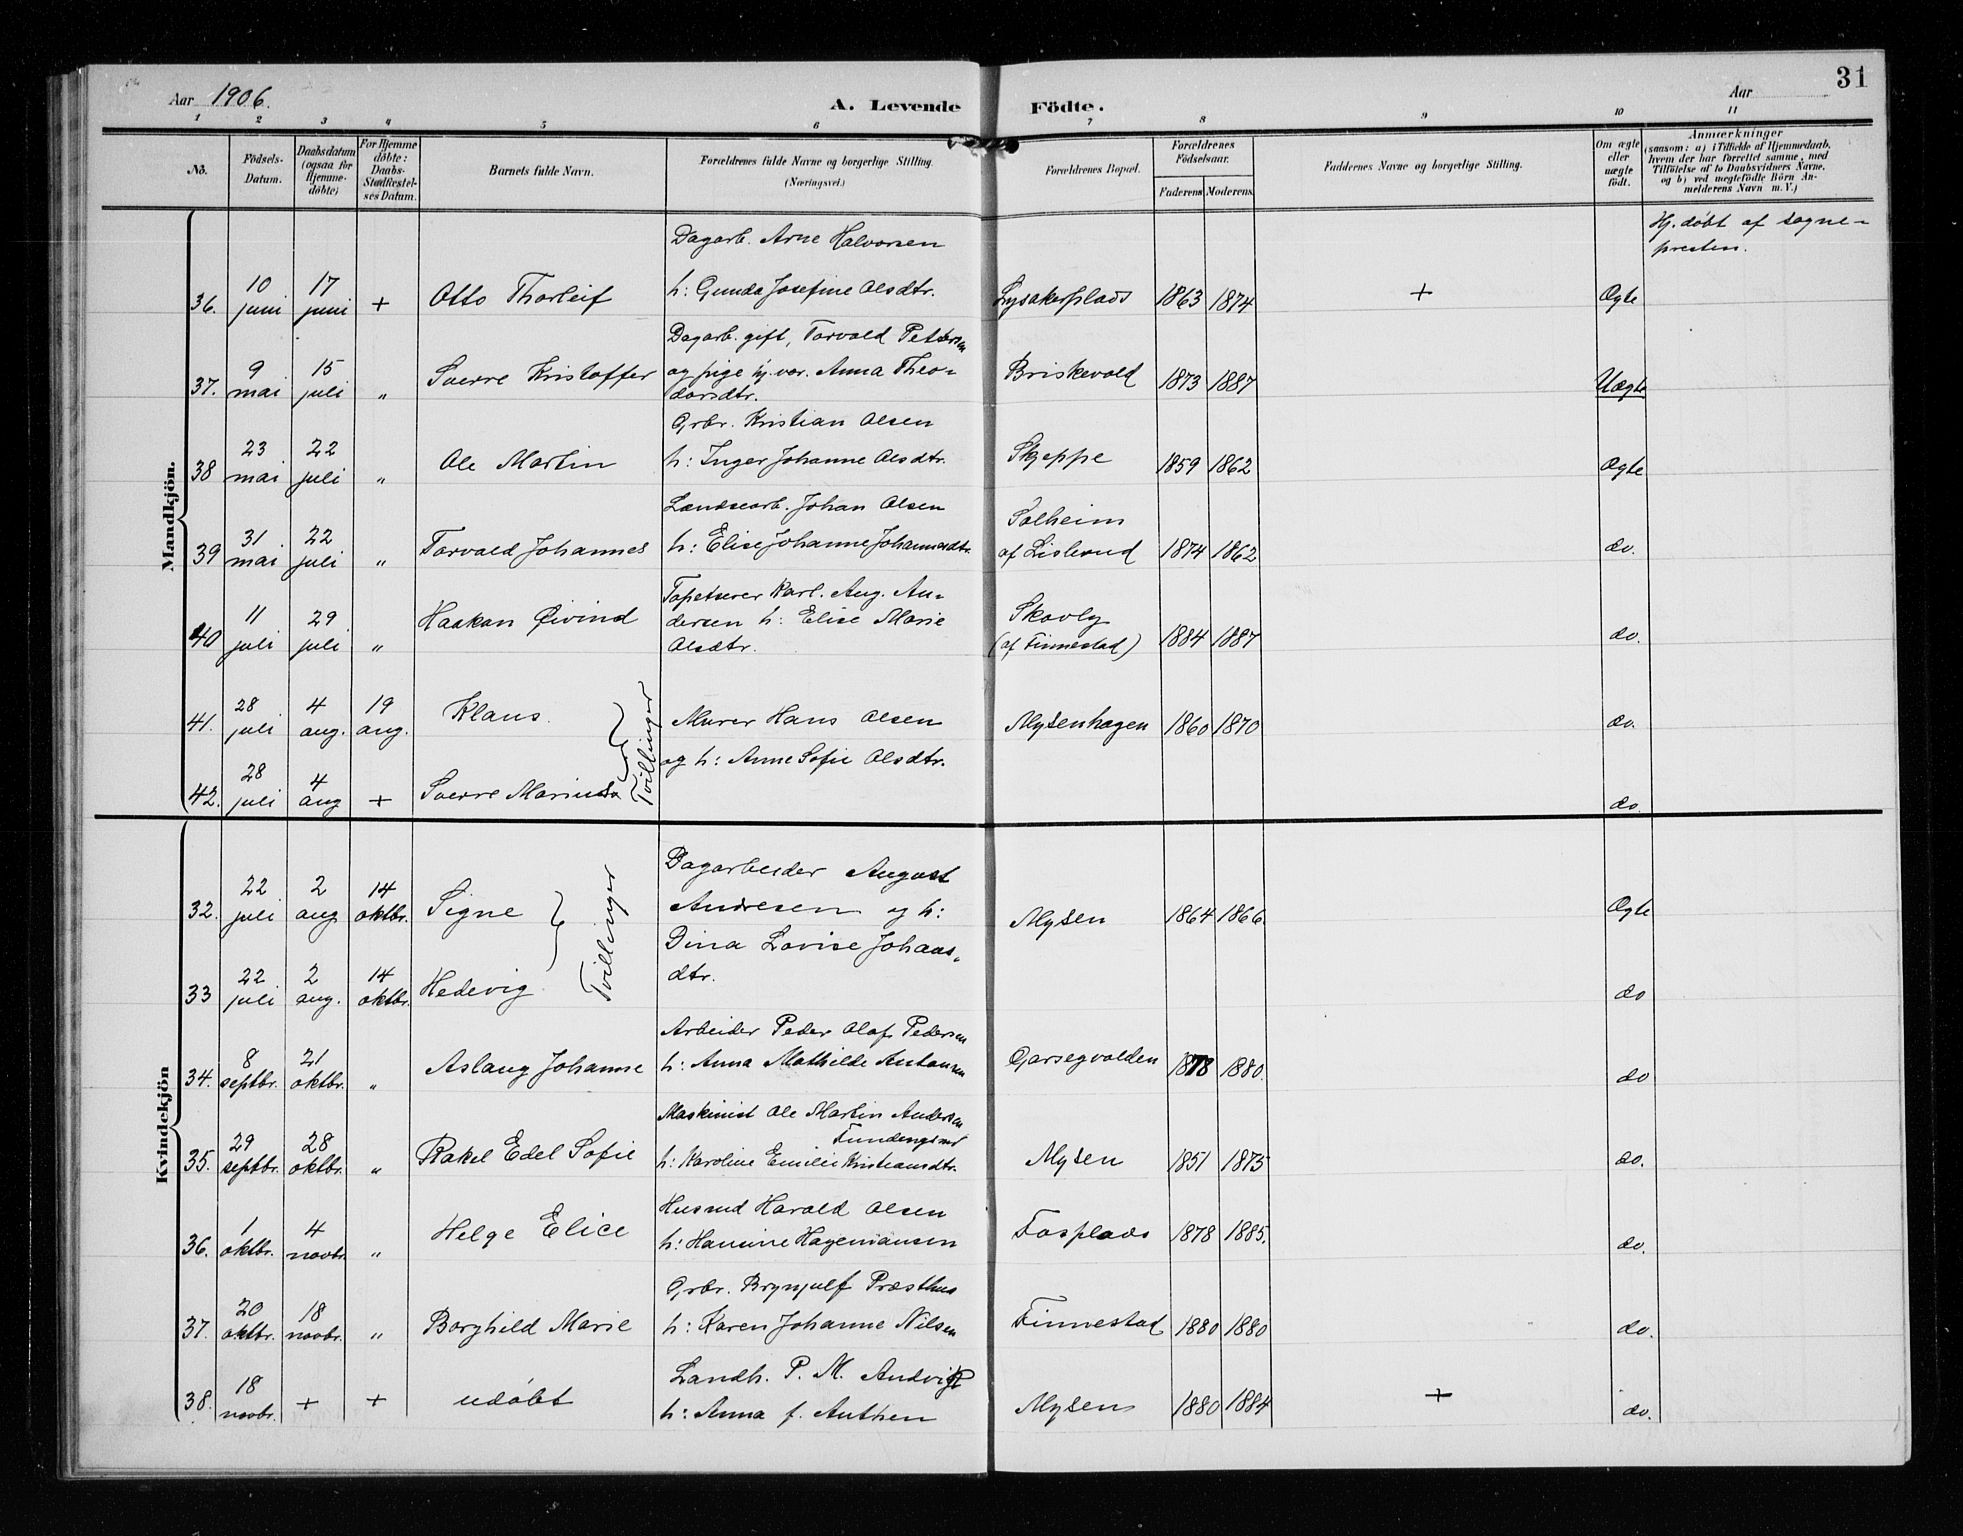 31
Aar 1906. A. Levende Födte. Aar
1 2 3 4 5 6 7 8 9 10 11
No. Födsels-Datum. Daabsdatum (ogsaa for Hjemme-döbte) For Hjemme döbte: Daabs-Stadfæstel-ses Datum. Barnets fulde Navn. Forældrenes fulde Navne og borgerlige Stilling. (Næringsvei.) Forældrenes Bopæl. Forældrenes Födselsaar. Faderens Moderens. Faddernes Navne og borgerlige Stilling. Om ægte eller uægte födt. Anmærkninger (saasom: a) i Tilfælde af Hjemmedaab, hvem der har forrettet samme, med Tilföielse af to Daabsvidners Navne, og b) ved uægtefödte Börn An-melderens Navn m. V.)
Mandkjön.
Dagarb. Arne Halvorsen Hj. döbt af sogne-
presten.
36. 10 juni 17 juni + Otto Thorleif h: Gunda Josefine Olsdtr. Lysakerplads 1863 1874 + Ægte
Dagarb. gift, Torvald Pettersen
37. 9 mai 15 juli " Sverre Kristoffer og pige hj.vær. Anna Theo- Briskevold 1873 1887 Uægte
dorsdtr.
Grbr. Kristian Olsen
38 23 mai 22 juli " Ole Martin h: Inger Johanne Olsdtr. Skjeppe 1859 1862 Ægte
Landsearb. Johan Olsen Solheim
39 31 mai 22 juli " Torvald Johannes h: Elise Johanne Johannesdtr. af Lislerud 1874 1862 do.
Tapetserer Karl. Aug. An-
40 11 juli 29 juli " Haakon Øivind dersen h: Elise Marie Skovly 1884 1887 do.
Olsdtr. (af Finnestad)
41. 28 juli 4 aug. 19 aug. Klaus. Tvillinger Murer Hans Olsen Mysenhagen 1860 1870 do.
og h: Anne Sofie Olsdtr.
42. 28 juli 4 aug + Sverre Marius do.
Kvindekjön
Dagarbeider August
32. 22 juli 2 aug 14 oktbr. Signe Tvillinger Andresen og h: Mysen 1864 1866. Ægte
Dina Lovise Johans-
33 22 juli 2 aug. 14 oktbr. Hedevig dtr. do
Arbeider Peder Olaf Pedersen
34. 8 septbr. 21 oktbr. " Aslaug Johanne h: Anna Mathilde Antonsen Garsegvolden 1878 1880. do
Maskinist Ole Martin Andersen
35. 29 septbr. 28 oktbr. " Rakel Edel Sofie h: Karoline Emilie Kristiansdtr. Mysen 1851 1875 do.
Husmd Harald Olsen
36. 1 oktbr. 4 novbr. " Helge Elice h: Hansine Hagemansen Fosplads 1878 1885. do.
Grbr. Brynjulf Præsthus
37. 20 oktbr. 18 novbr. " Borghild Marie h: Karen Johanne Nilsen Finnestad 1880 1880 do.
Landh. P. M. Andvig
38. 18 novbr. + + udöbt h: Anna f. Anthen Mysen 1880 1884 + do.